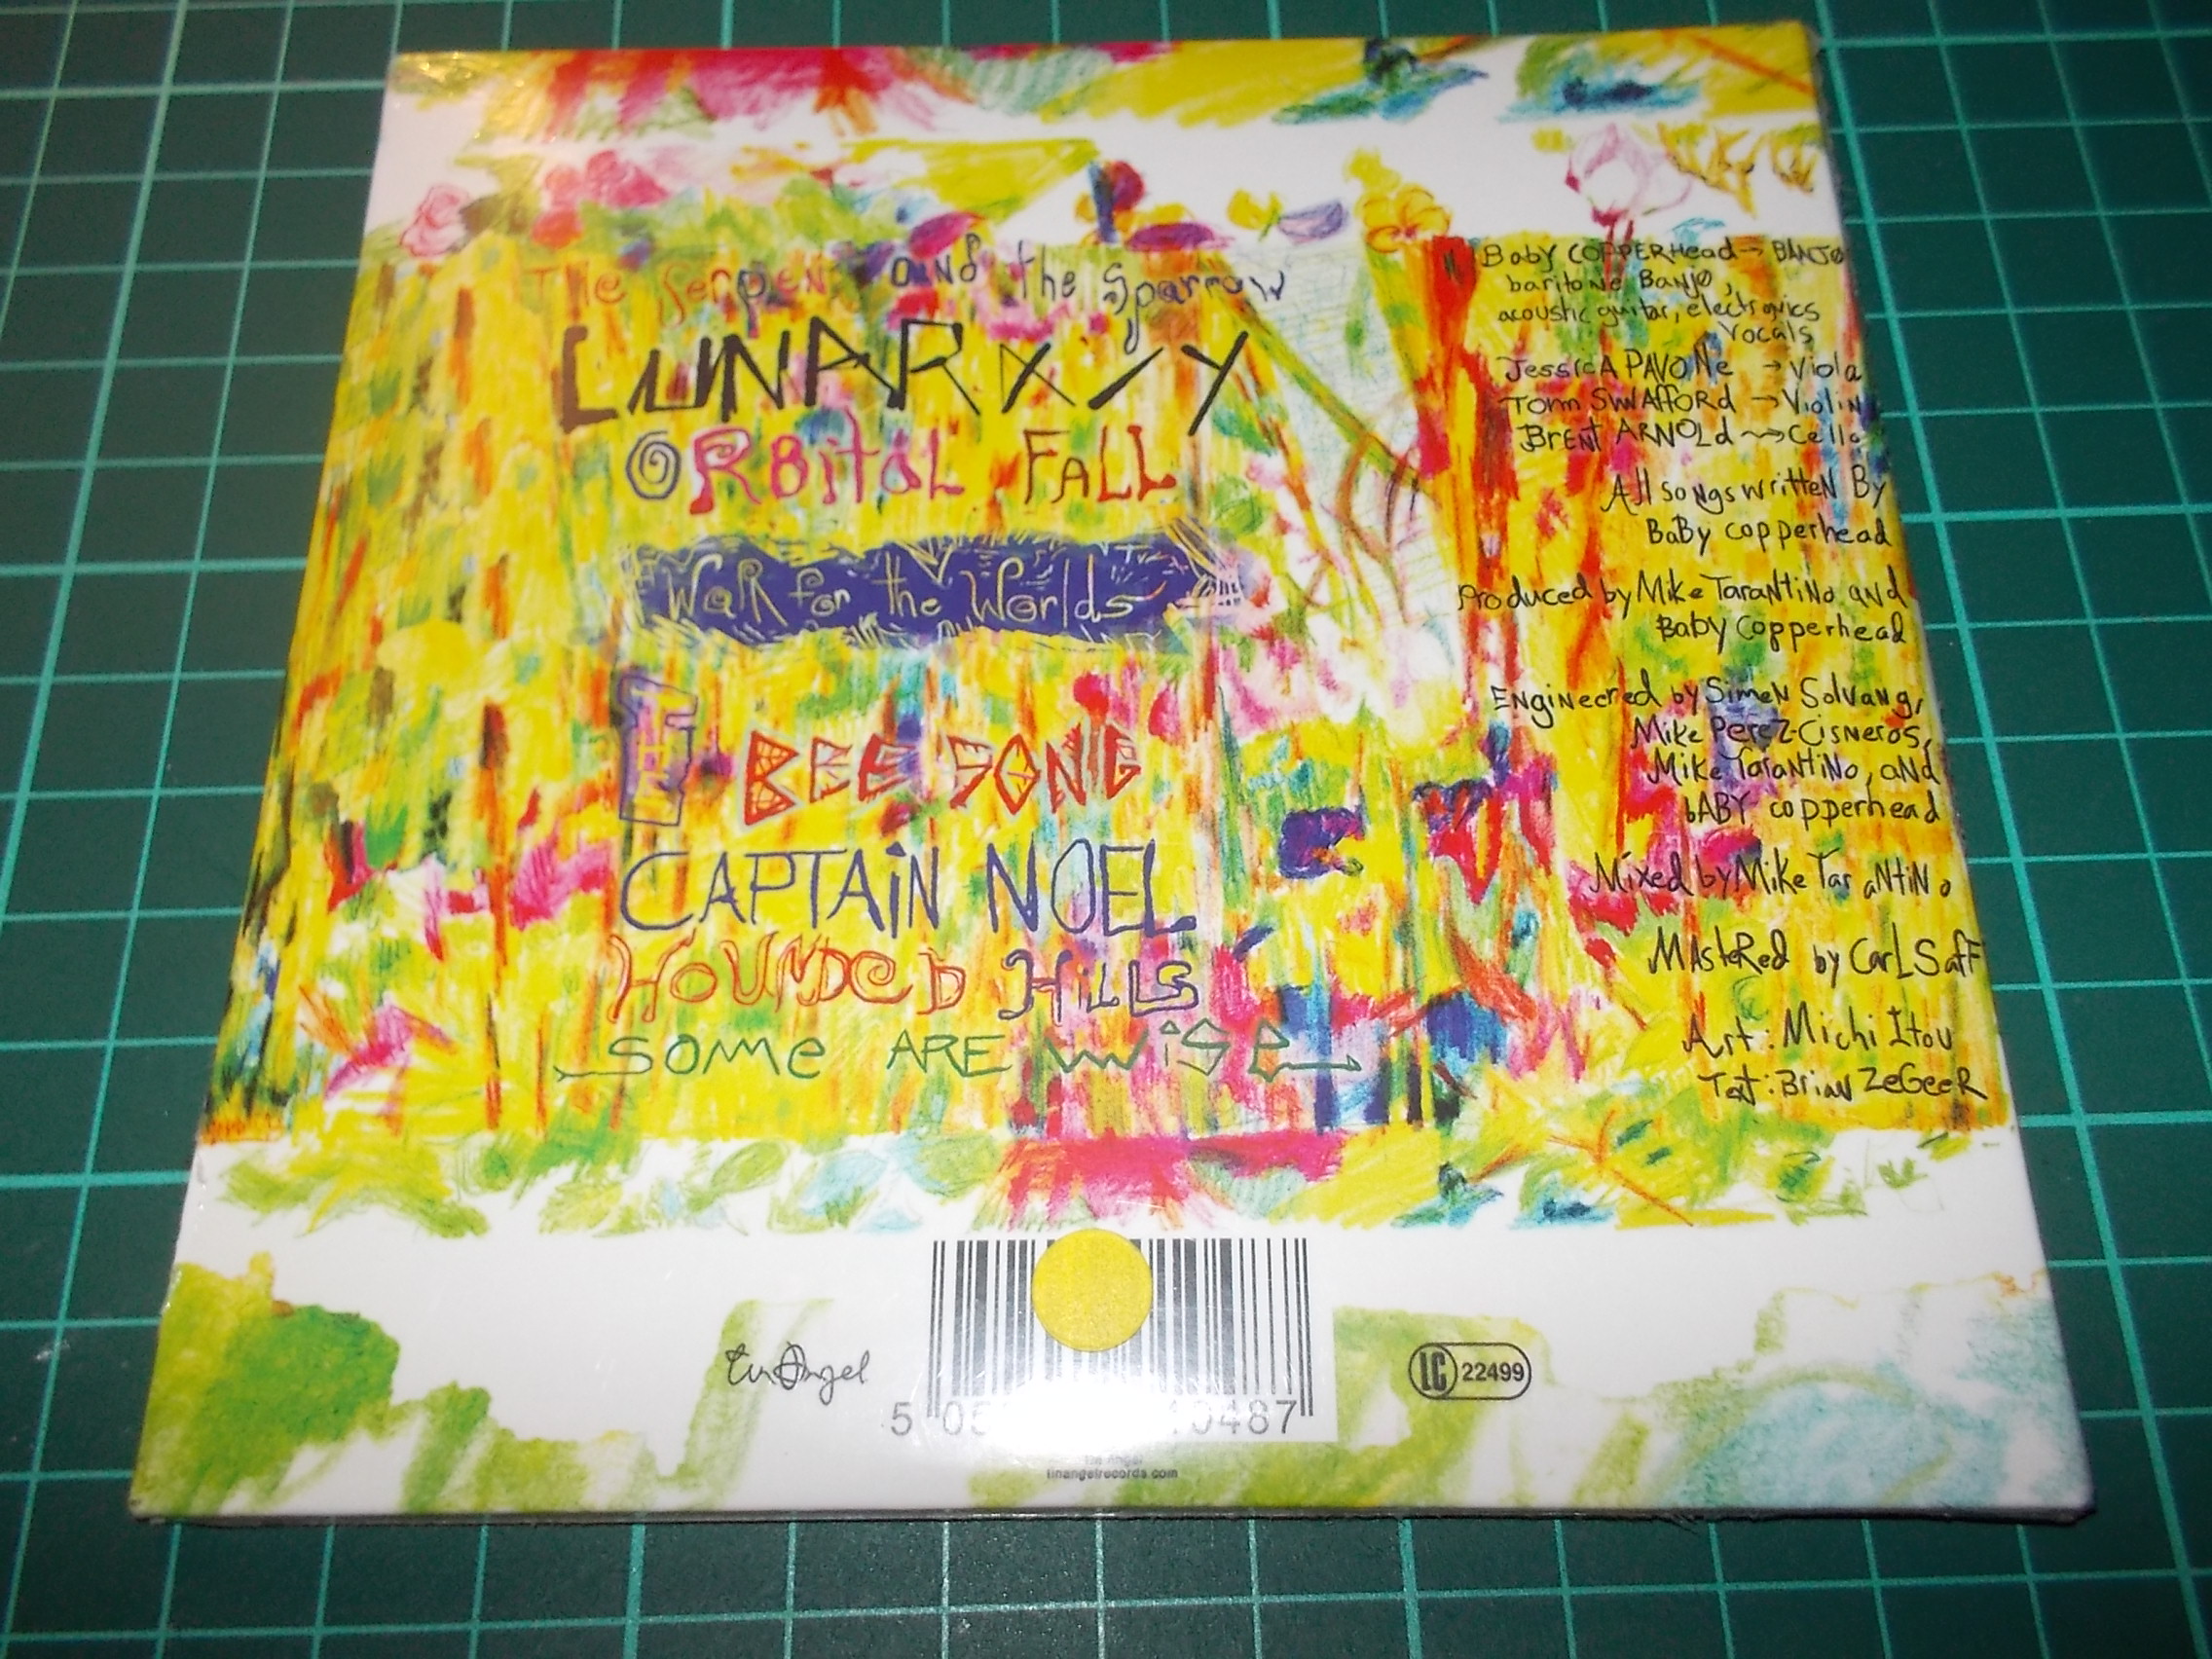 The Serpent and the Sparrow
LUNAR X/Y
ORBitaL FaLL
Walk for the Worlds
THE BEE SONG
CAPTAiN NOEL
HOUNDED HiLLS
SOMe ARE wiSe
Baby COPPERHead → BANJO
baritoNe BaNJO,
acoustic guitar, electronics
Vocals
JessicA PAVONe → Viola
Tom SWAffORd → Violin
BrENT ARNOLd → Cello
All soNgs writteN By
BaBy copperhead
Produced by Mike TaraNtiNo aNd
Baby Copperhead
ENgiNeered by SimeN SolvaNg,
Mike PereZ-CisNeros,
Mike TaraNtiNo, aNd
bABY copperhead
Mixed by Mike TaraNtiNo
MAsteRed by CarL Saff
Art: Michi Itou
Text: Briaw ZeGeeR
tin Angel
5 05 10487
LC 22499
Tin Angel
tinangelrecords.com